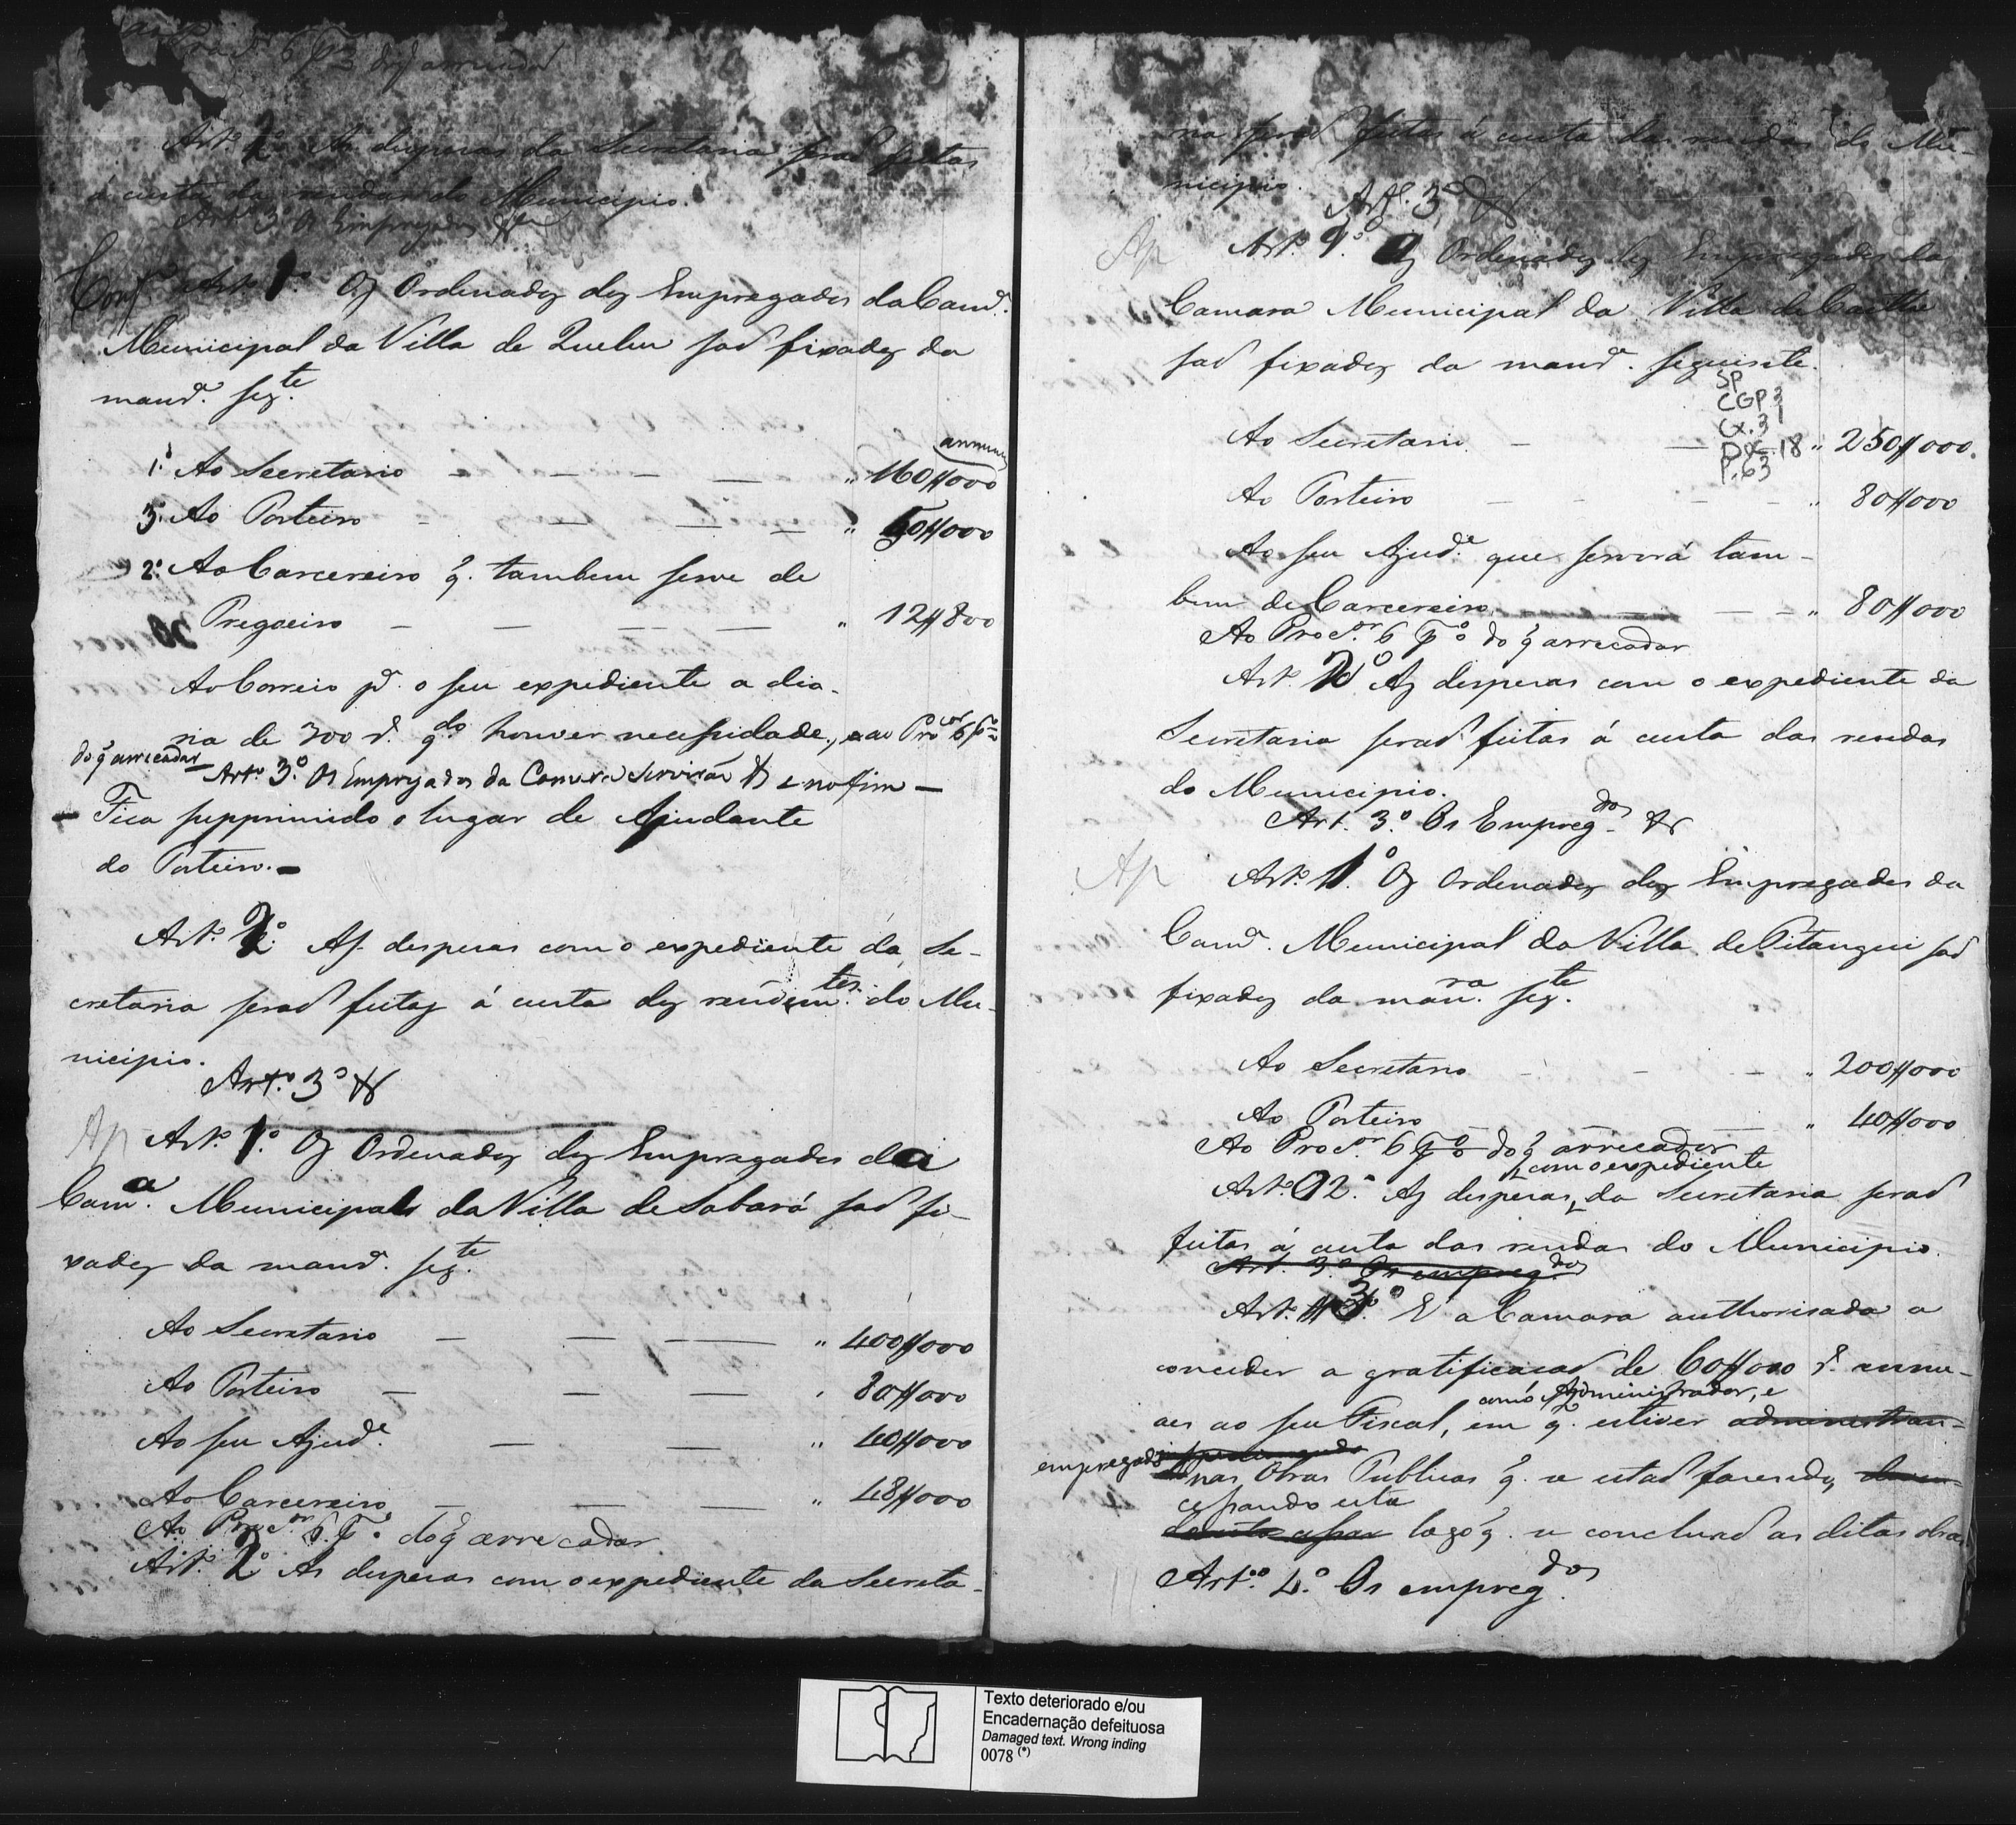 6 p% dos arrecadar
Artº 2º As despezas da Secretaria serão feitas
á custa das rendas do Municipio.
Artº 3º Os Empregados &
Conf Artº 1º Os Ordenados dos Empregados da Camª.
Municipal da Villa de Queluz são fixados da
manª. segte.
annuaes
1º Ao Secretario — — — — " 160$000
3º Ao Porteiro — — — — " 50$000
2º Ao Carcereiro q. tambem serve de
Pregoeiro — — — — " 12$800
Ao Correio pª. o seu expediente a dia-
ria de 300 r. qdo houver necessidade, e ao Procor 6 p%
do q arrecadar
Artº 3º Os Empregados da Camara servirão & e no fim —
Fica supprimido o lugar de Ajudante
do Porteiro. —
Artº 2º As despezas com o expediente da Se-
cretaria serão feitas á custa dos rendimtos. do Mu-
nicipio.
Artº 3º &
Ap Artº 1º Os Ordenados dos Empregados da
Camª. Municipal da Villa de Sabará são fi-
xados da manª. segte.
Ao Secretario — — — " 400$000
Ao Porteiro — — — " 80$000
Ao seu Ajude. — — " 40$000
Ao Carcereiro — — — " 48$000
Ao Procor 6 p% do q arrecadar
Artº 2º As despezas com o expediente da Secreta-
ria serão feitas á custa das rendas do Mu-
nicipio.
Artº. 3º &
Ap Artº 1º Os Ordenados dos Empregados da
Camara Municipal da Villa de Caethe
são fixados da manª. seguinte.
SP
CGP 3
Cx. 31
DX-18
P. 63
Ao Secretario — — " 250$000.
Ao Porteiro — — — — " 80$000
Ao seu Ajude. que servirá tam-
bem de Carcereiro — — — " 80$000
Ao Procor 6 p% do q arrecadar
Artº 2º As despezas com o expediente da
Secretaria serão feitas á custa das rendas
do Municipio.
Art. 3º Os Empregdos &
Ap Artº 1º Os Ordenados dos Empregados da
Camª. Municipal da Villa de Pitangui são
fixados da manra. segte.
Ao Secretario — — — " 200$000
Ao Porteiro — — " 40$000
Ao Procor 6 p% do q arrecadar
com o expediente
Artº 2º As despezas da Secretaria serão
feitas á custa das rendas do Municipio.
Art. 3º Os empregdos
Artº 3º E' a Camara authorisada a
conceder a gratificacão de 60$000 r. annu-
como Administrador, e
aes ao seu Fiscal, em q. estiver administran-
empregado nas Obras Publicas q. se estão fazendo,
cessando esta
logo q. se concluão as ditas obras
Artº 4º Os empregdos
Texto deteriorado e/ou
Encadernação defeituosa
Damaged text. Wrong inding
0078 (*)